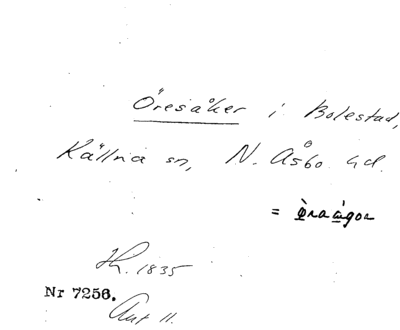 Öresåker i Bolestad,
Källna sn, N. Åsbo hd.
= öraågor
Hr. 1835
Nr 7256.
Akt 11.